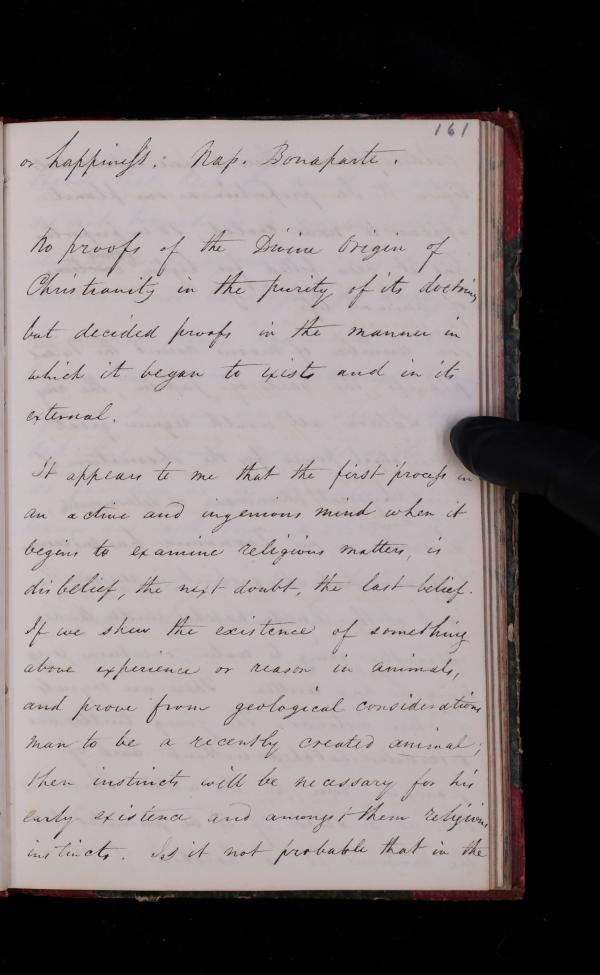 161
or happiness. Nap. Bonaparte.
No proofs of the Divine Origin of
Christianity in the purity of its doctrine,
but decided proofs in the manner in
which it began to exist and in its
external.
It appears to me that the first process in
an active and ingenious mind when it
begins to examine religious matters, is
disbelief, the next doubt, the last belief.
If we shew the existence of something
above experience or reason in animals,
and prove from geological considerations
man to be a recently created animal;
then instincts will be necessary for his
early existence and amongst them religious
instincts. Is it not probable that in the